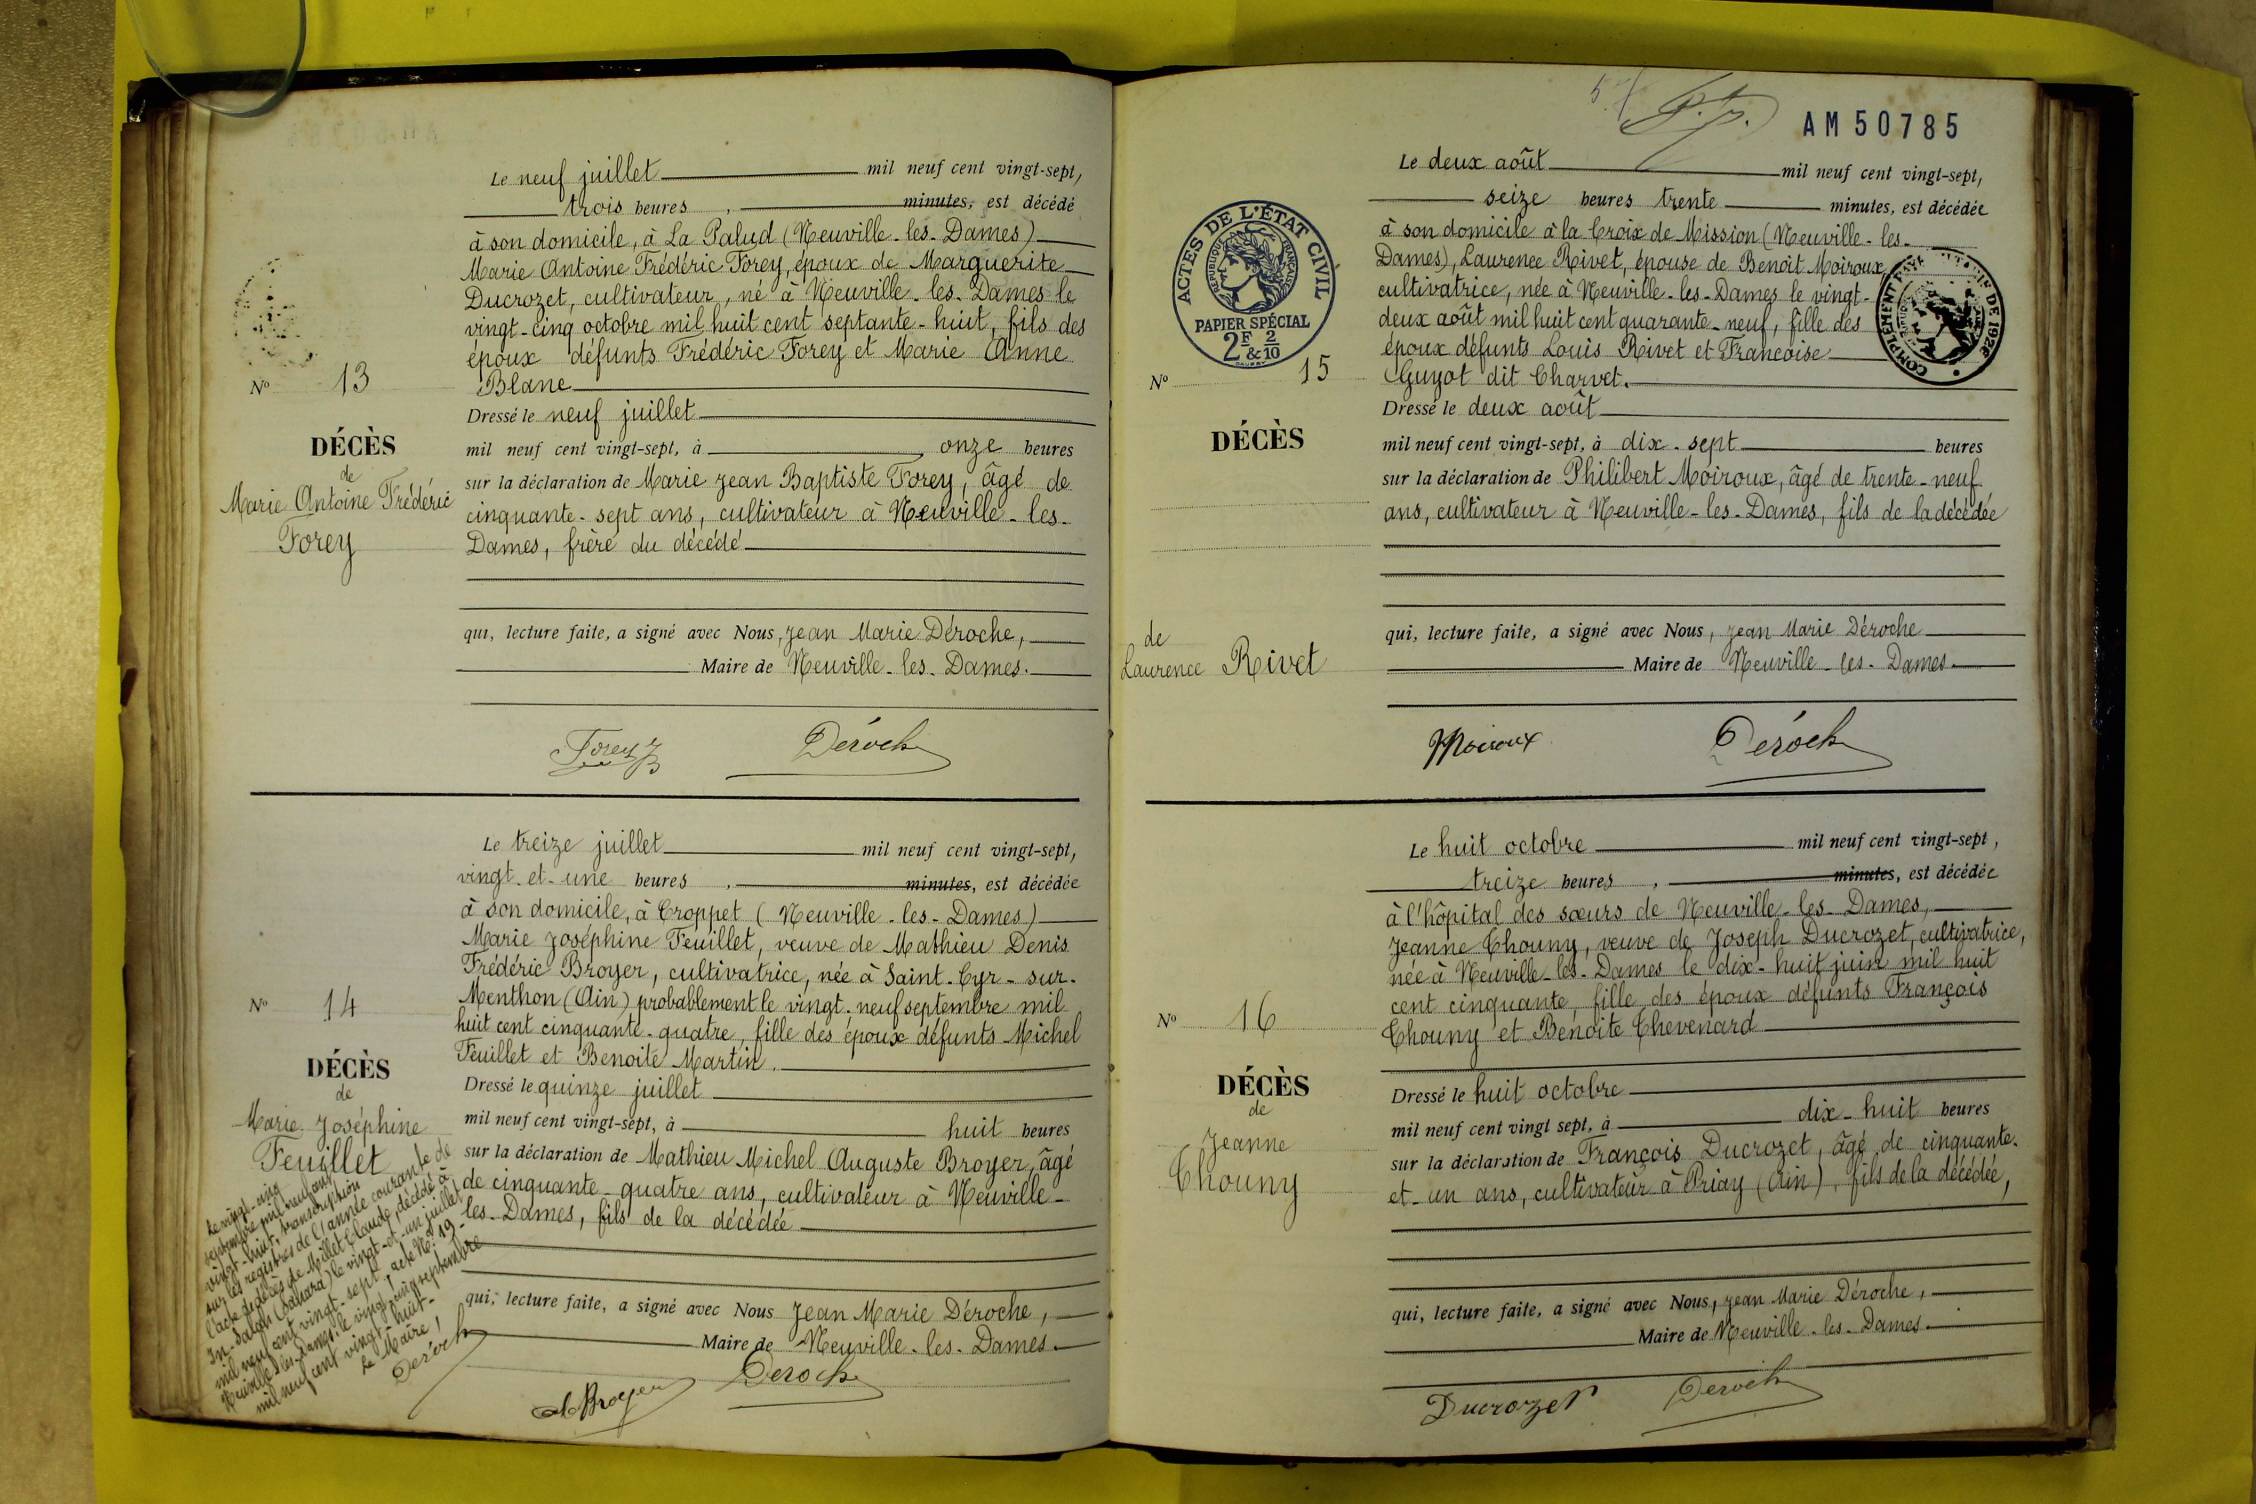 Le neuf juillet mil neuf cent vingt-sept,
trois heures , minutes, est décédé
à son domicile, à La Palud (Neuville-les-Dames)
Marie Antoine Frédéric Forey, époux de Marguerite
Ducrozet, cultivateur, né à Neuville-les-Dames le
vingt-cinq octobre mil huit cent septante-huit, fils des
époux défunts Frédéric Forey et Marie Anne
Blanc
Nº 13
Dressé le neuf juillet
DÉCÈS
mil neuf cent vingt-sept, à onze heures
de
sur la déclaration de Marie Jean Baptiste Forey, âgé de
Marie Antoine Frédéric
cinquante-sept ans, cultivateur à Neuville-les-
Forey
Dames, frère du décédé
qui, lecture faite, a signé avec Nous, Jean Marie Déroche,
Maire de Neuville-les-Dames.
Forey Déroche
Le treize juillet mil neuf cent vingt-sept,
vingt-et-une heures , minutes, est décédée
à son domicile, à Croppet (Neuville-les-Dames)
Marie Joséphine Feuillet, veuve de Mathieu Denis
Frédéric Broyer, cultivatrice, née à Saint-Cyr-sur-
Menthon (Ain) probablement le vingt-neuf septembre mil
huit cent cinquante-quatre, fille des époux défunts Michel
Feuillet et Benoite Martin.
Nº 14
DÉCÈS
de
Marie Joséphine
Feuillet
Dressé le quinze juillet
mil neuf cent vingt-sept, à huit heures
sur la déclaration de Mathieu Michel Auguste Broyer, âgé
de cinquante-quatre ans, cultivateur à Neuville-
les-Dames, fils de la décédée
qui, lecture faite, a signé avec Nous Jean Marie Déroche,
Maire de Neuville-les-Dames.
Broyer Déroche
Le vingt-cinq
septembre mil neuf cent
vingt-huit, transcription
sur les registres de l'année courante de
l'acte de décès de Millet Claude, décédé à
In-Salah (Sahara) le vingt-et-un juillet
mil neuf cent vingt-sept, acte Nº 19-
Neuville-les-Dames, le vingt-cinq septembre
mil neuf cent vingt-huit-
Le Maire,
Déroche
AM 50785
Le deux août mil neuf cent vingt-sept,
seize heures trente minutes, est décédée
à son domicile à la Croix de Mission (Neuville-les-
Dames), Laurence Rivet, épouse de Benoît Moiroux
cultivatrice, née à Neuville-les-Dames le vingt-
deux août mil huit cent quarante-neuf, fille des
époux défunts Louis Rivet et Françoise
Guyot dit Charvet.
ACTES DE L'ÉTAT CIVIL
RÉPUBLIQUE FRANÇAISE
PAPIER SPÉCIAL
2F & 2/10
Nº 15
Dressé le deux août
DÉCÈS
mil neuf cent vingt-sept, à dix-sept heures
sur la déclaration de Philibert Moiroux, âgé de trente-neuf
ans, cultivateur à Neuville-les-Dames, fils de la décédée
qui, lecture faite, a signé avec Nous, Jean Marie Déroche
de
Laurence Rivet
Maire de Neuville-les-Dames
Moiroux Déroche
Le huit octobre mil neuf cent vingt-sept,
treize heures , minutes, est décédée
à l'hôpital des sœurs de Neuville-les-Dames,
Jeanne Chouny, veuve de Joseph Ducrozet, cultivatrice,
née à Neuville-les-Dames le dix-huit juin mil huit
cent cinquante, fille des époux défunts François
Chouny et Benoite Thevenard
Nº 16
DÉCÈS
de
Jeanne
Chouny
Dressé le huit octobre
mil neuf cent vingt sept, à dix-huit heures
sur la déclaration de François Ducrozet, âgé de cinquante-
et-un ans, cultivateur à Priay (Ain), fils de la décédée,
qui, lecture faite, a signé avec Nous, Jean Marie Déroche,
Maire de Neuville-les-Dames
Ducrozet Déroche